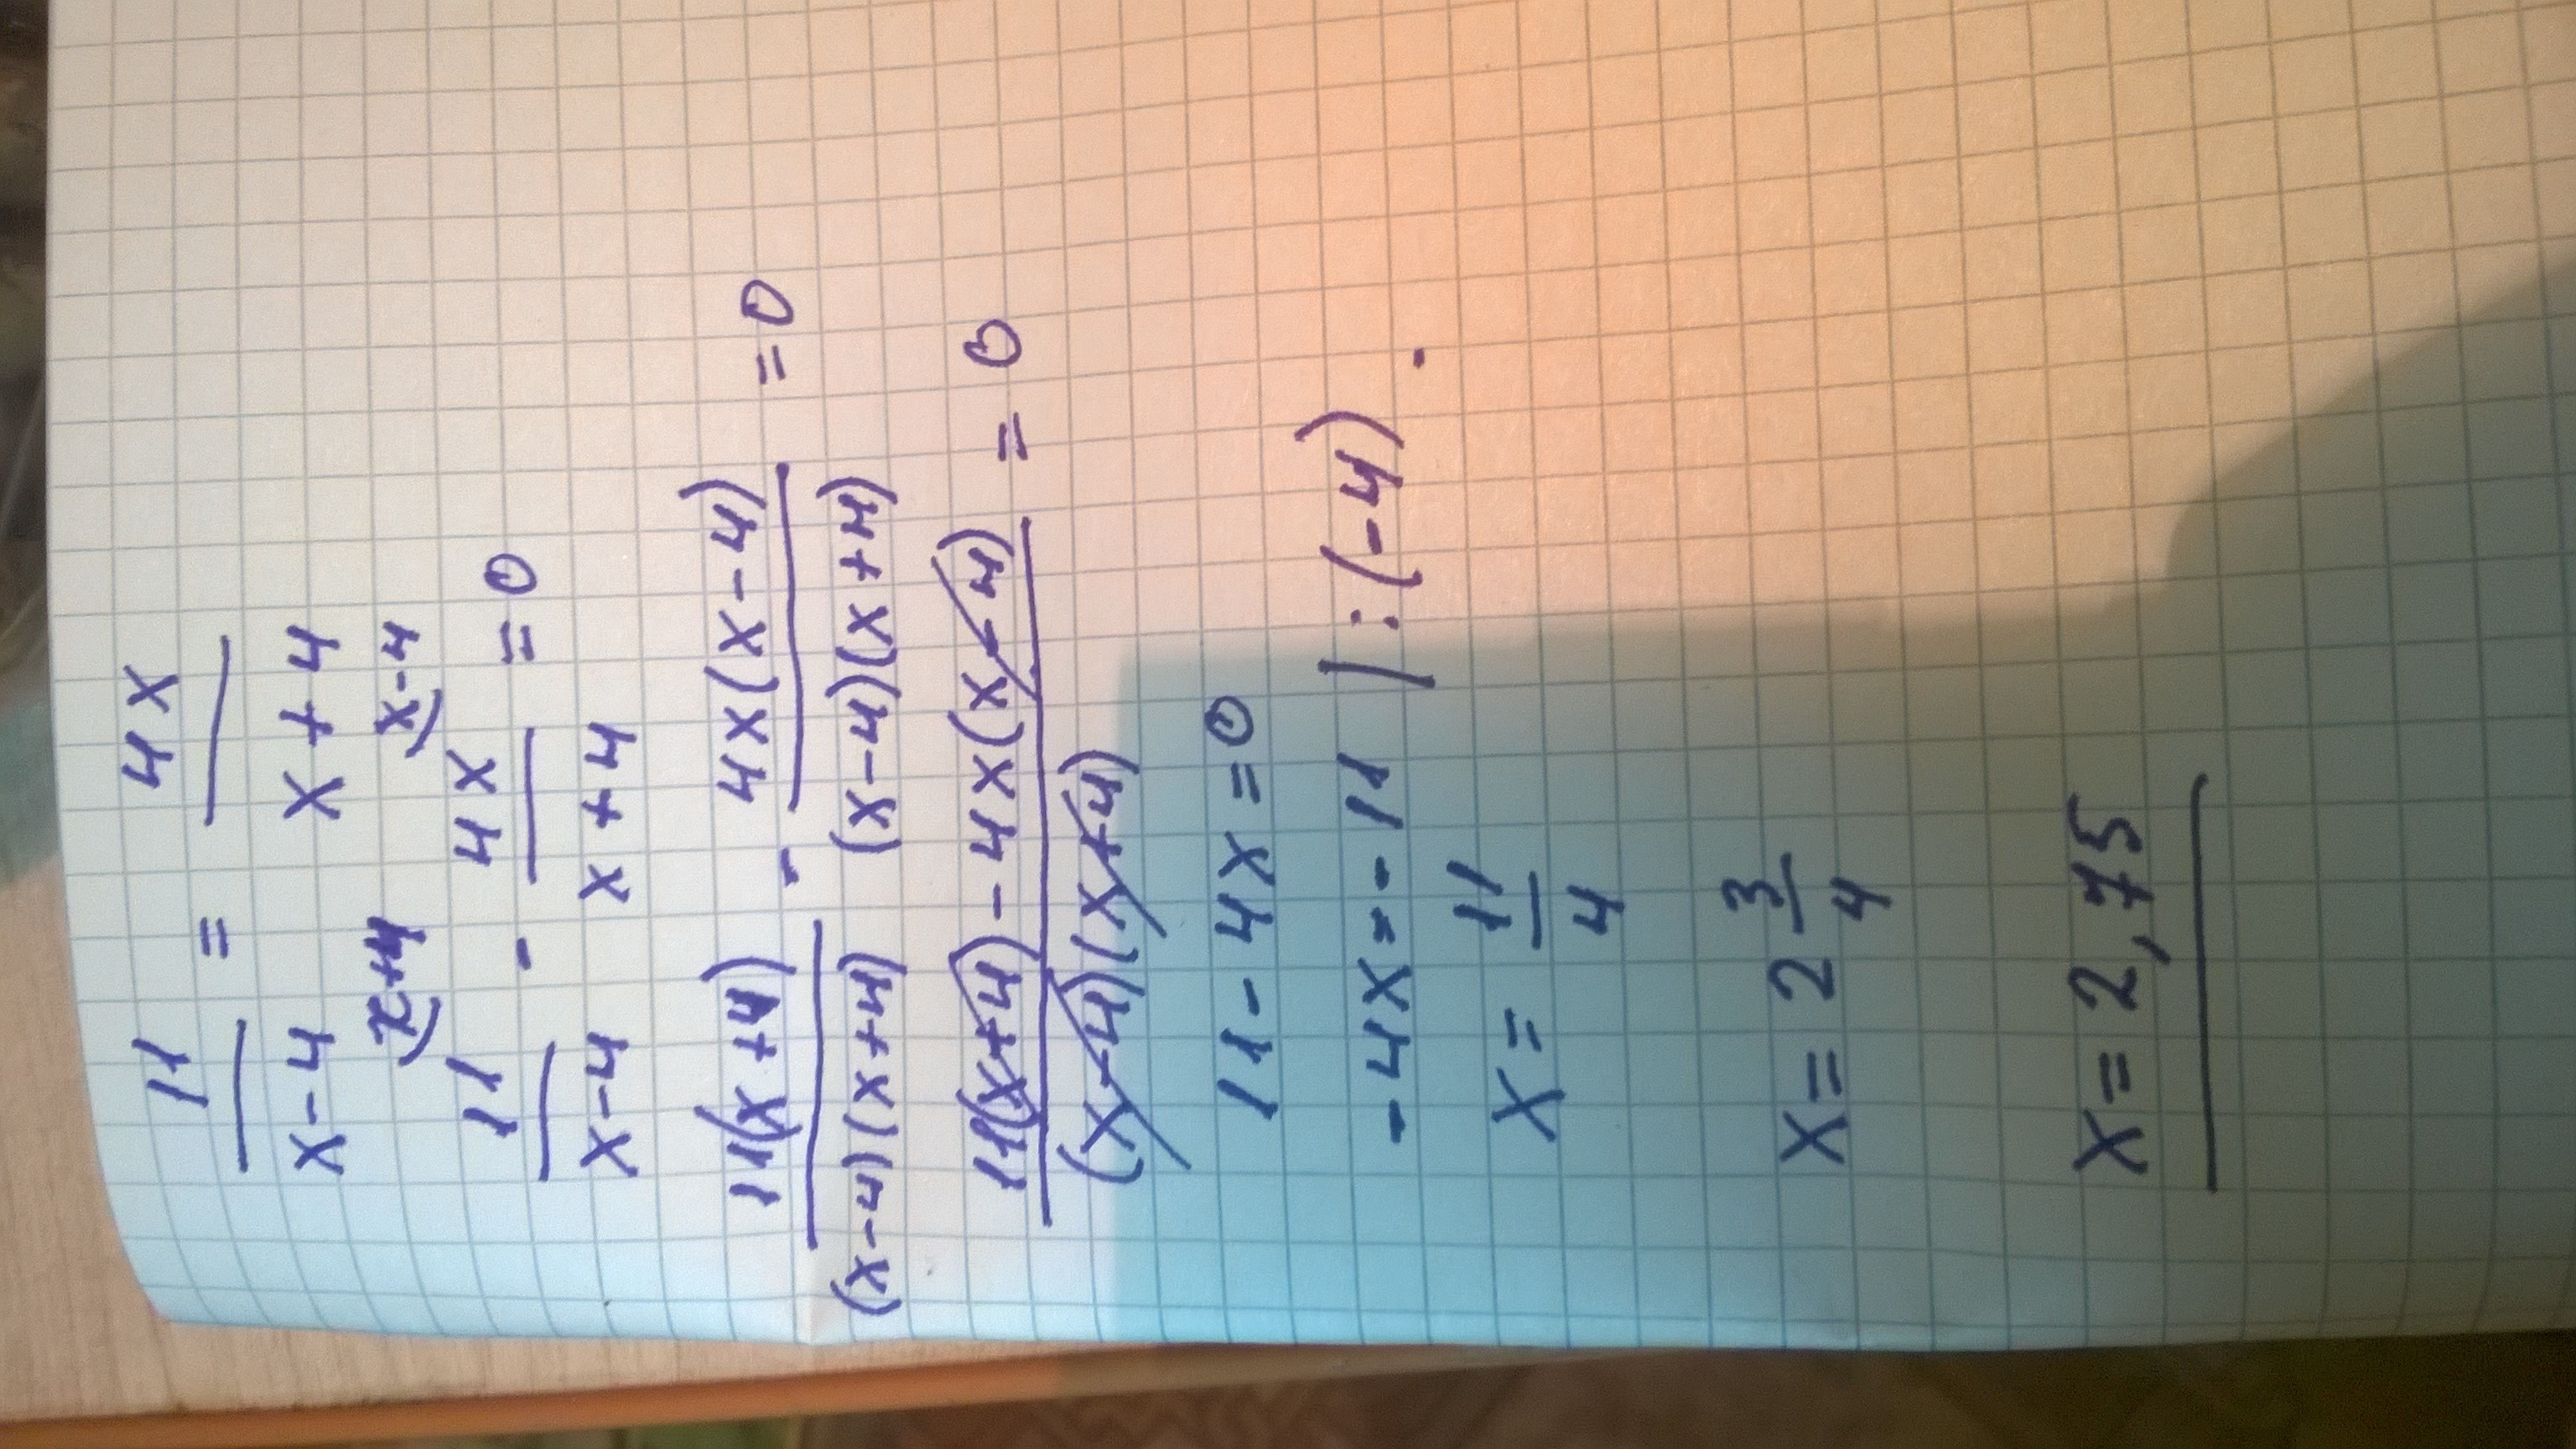 11/(x-4) = 4x/(x+4)
11/(x-4) (x+4 - 4x/(x+4) (x-4 = 0
11(x+4)/((x-4)(x+4)) - 4x(x-4)/((x-4)(x+4)) = 0
(11(x+4) - 4x(x-4))/((x-4)(x+4)) = 0
11-4x=0
-4x=-11 |:(-4).
x= 11/4
x=2 3/4
x=2,75